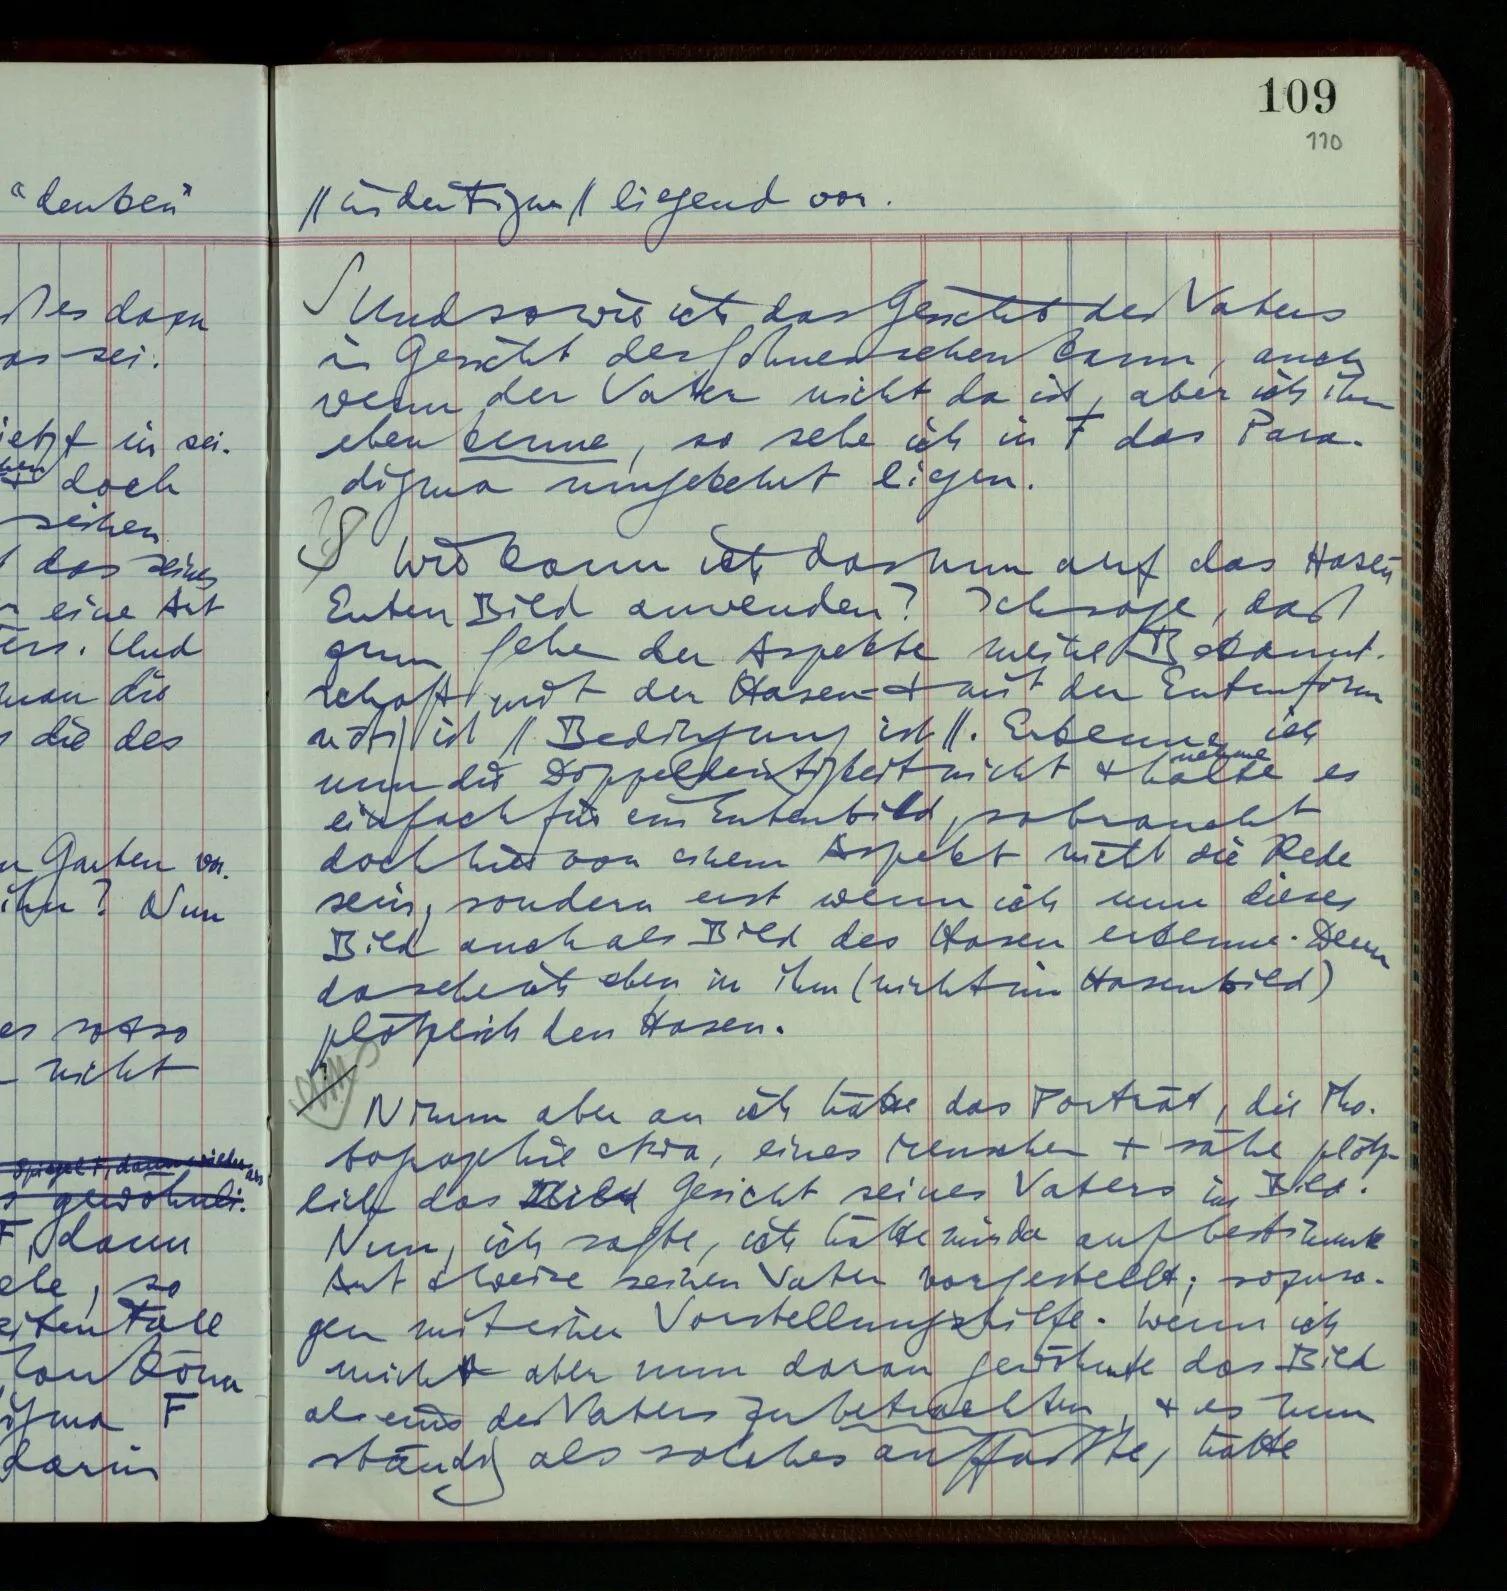 "denken"
es dazu
as sei.
jetzt in sei-
doch
sehen
das seines
eine Art
ers. Und
man die
die des
Garten vor.
ihn? Nun
es so & so
nicht
gewöhnli-
F, dann
ehe, so
Falle
kön
igma F
darin
109
110
// in der Figur // liegend vor.
∫ Und so wie ich das Gesicht des Vaters
in Gesicht des Sohnes sehen kann, auch
wenn der Vater nicht da ist, aber ich ihn
eben kenne, so sehe ich in F das Para-
digma umgekehrt liegen.
∫ Wie kann ich das nun auf das Hasen
Enten Bild anwenden? Ich sage, daß
zum Sehen der Aspekte meine Bekannt-
schaft mit der Hasen- & mit der Entenform
nötig ist // Bedingung ist //. Erkenne ich
nehme
nun die Doppeldeutigkeit nicht & halte es
einfach für ein Entenbild, so braucht
doch hier von einem Aspekt nicht die Rede
sein, sondern erst wenn ich nun dieses
Bild auch als Bild des Hasen erkenne. Denn
da sehe ich eben in ihm (nicht im Hasenbild)
plötzlich den Hasen.
Nimm aber an ich hätte das Porträt, die Pho-
tographie etwa, eines Menschen & sähe plötz-
lich das Bild Gesicht seines Vaters im Bild.
Nun, ich sagte, ich hätte mir da auf bestimmte
Art & Weise seinen Vater vorgestellt; sozusa-
gen mit einer Vorstellungshilfe. Wenn ich
mich aber nun daran gewöhnte das Bild
als eins des Vaters zu betrachten, & es nun
ständig als solches auffaßte, hätte